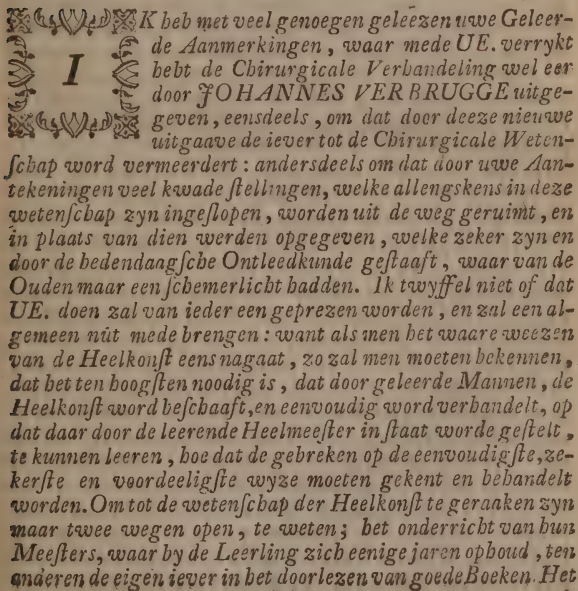 IK heb met veel genoegen geleezen uwe Geleer-
de Aanmerkingen, waar mede UE. verrykt
hebt de Chirurgicale Verhandeling wel eer
door JOHANNES VERBRUGGE uitge-
geven, eensdeels, om dat door deeze nieuwe
uitgaave de iever tot de Chirurgicale Weten-
ſchap word vermeerdert: andersdeels om dat door uwe Aan-
tekeningen veel kwade ſtellingen, welke allengskens in deze
wetenſchap zyn ingeſlopen, worden uit de weg geruimt, en
in plaats van dien werden opgegeven, welke zeker zyn en
door de hedendaagſche Ontleedkunde geſtaaft, waar van de
Ouden maar een ſchemerlicht hadden. Ik twyffel niet of dat
UE. doen zal van ieder een geprezen worden, en zal een al-
gemeen nùt mede brengen: want als men het waare weezen
van de Heelkonſt eens nagaat, zo zal men moeten bekennen,
dat het ten hoogſten noodig is, dat door geleerde Mannen, de
Heelkonſt word beſchaaft, en eenvoudig word verhandelt, op
dat daar door de leerende Heelmeeſter in ſtaat worde geſtelt,
te kunnen leeren, hoe dat de gebreken op de eenvoudigſte, ze-
kerſte en voordeeligſte wyze moeten gekent en behandelt
worden. Om tot de wetenſchap der Heelkonſt te geraaken zyn
maar twee wegen open, te weten; het onderricht van hun
Meeſters, waar by de Leerling zich eenige jaren ophoud, ten
anderen de eigen iever in het doorlezen van goede Boeken. Het